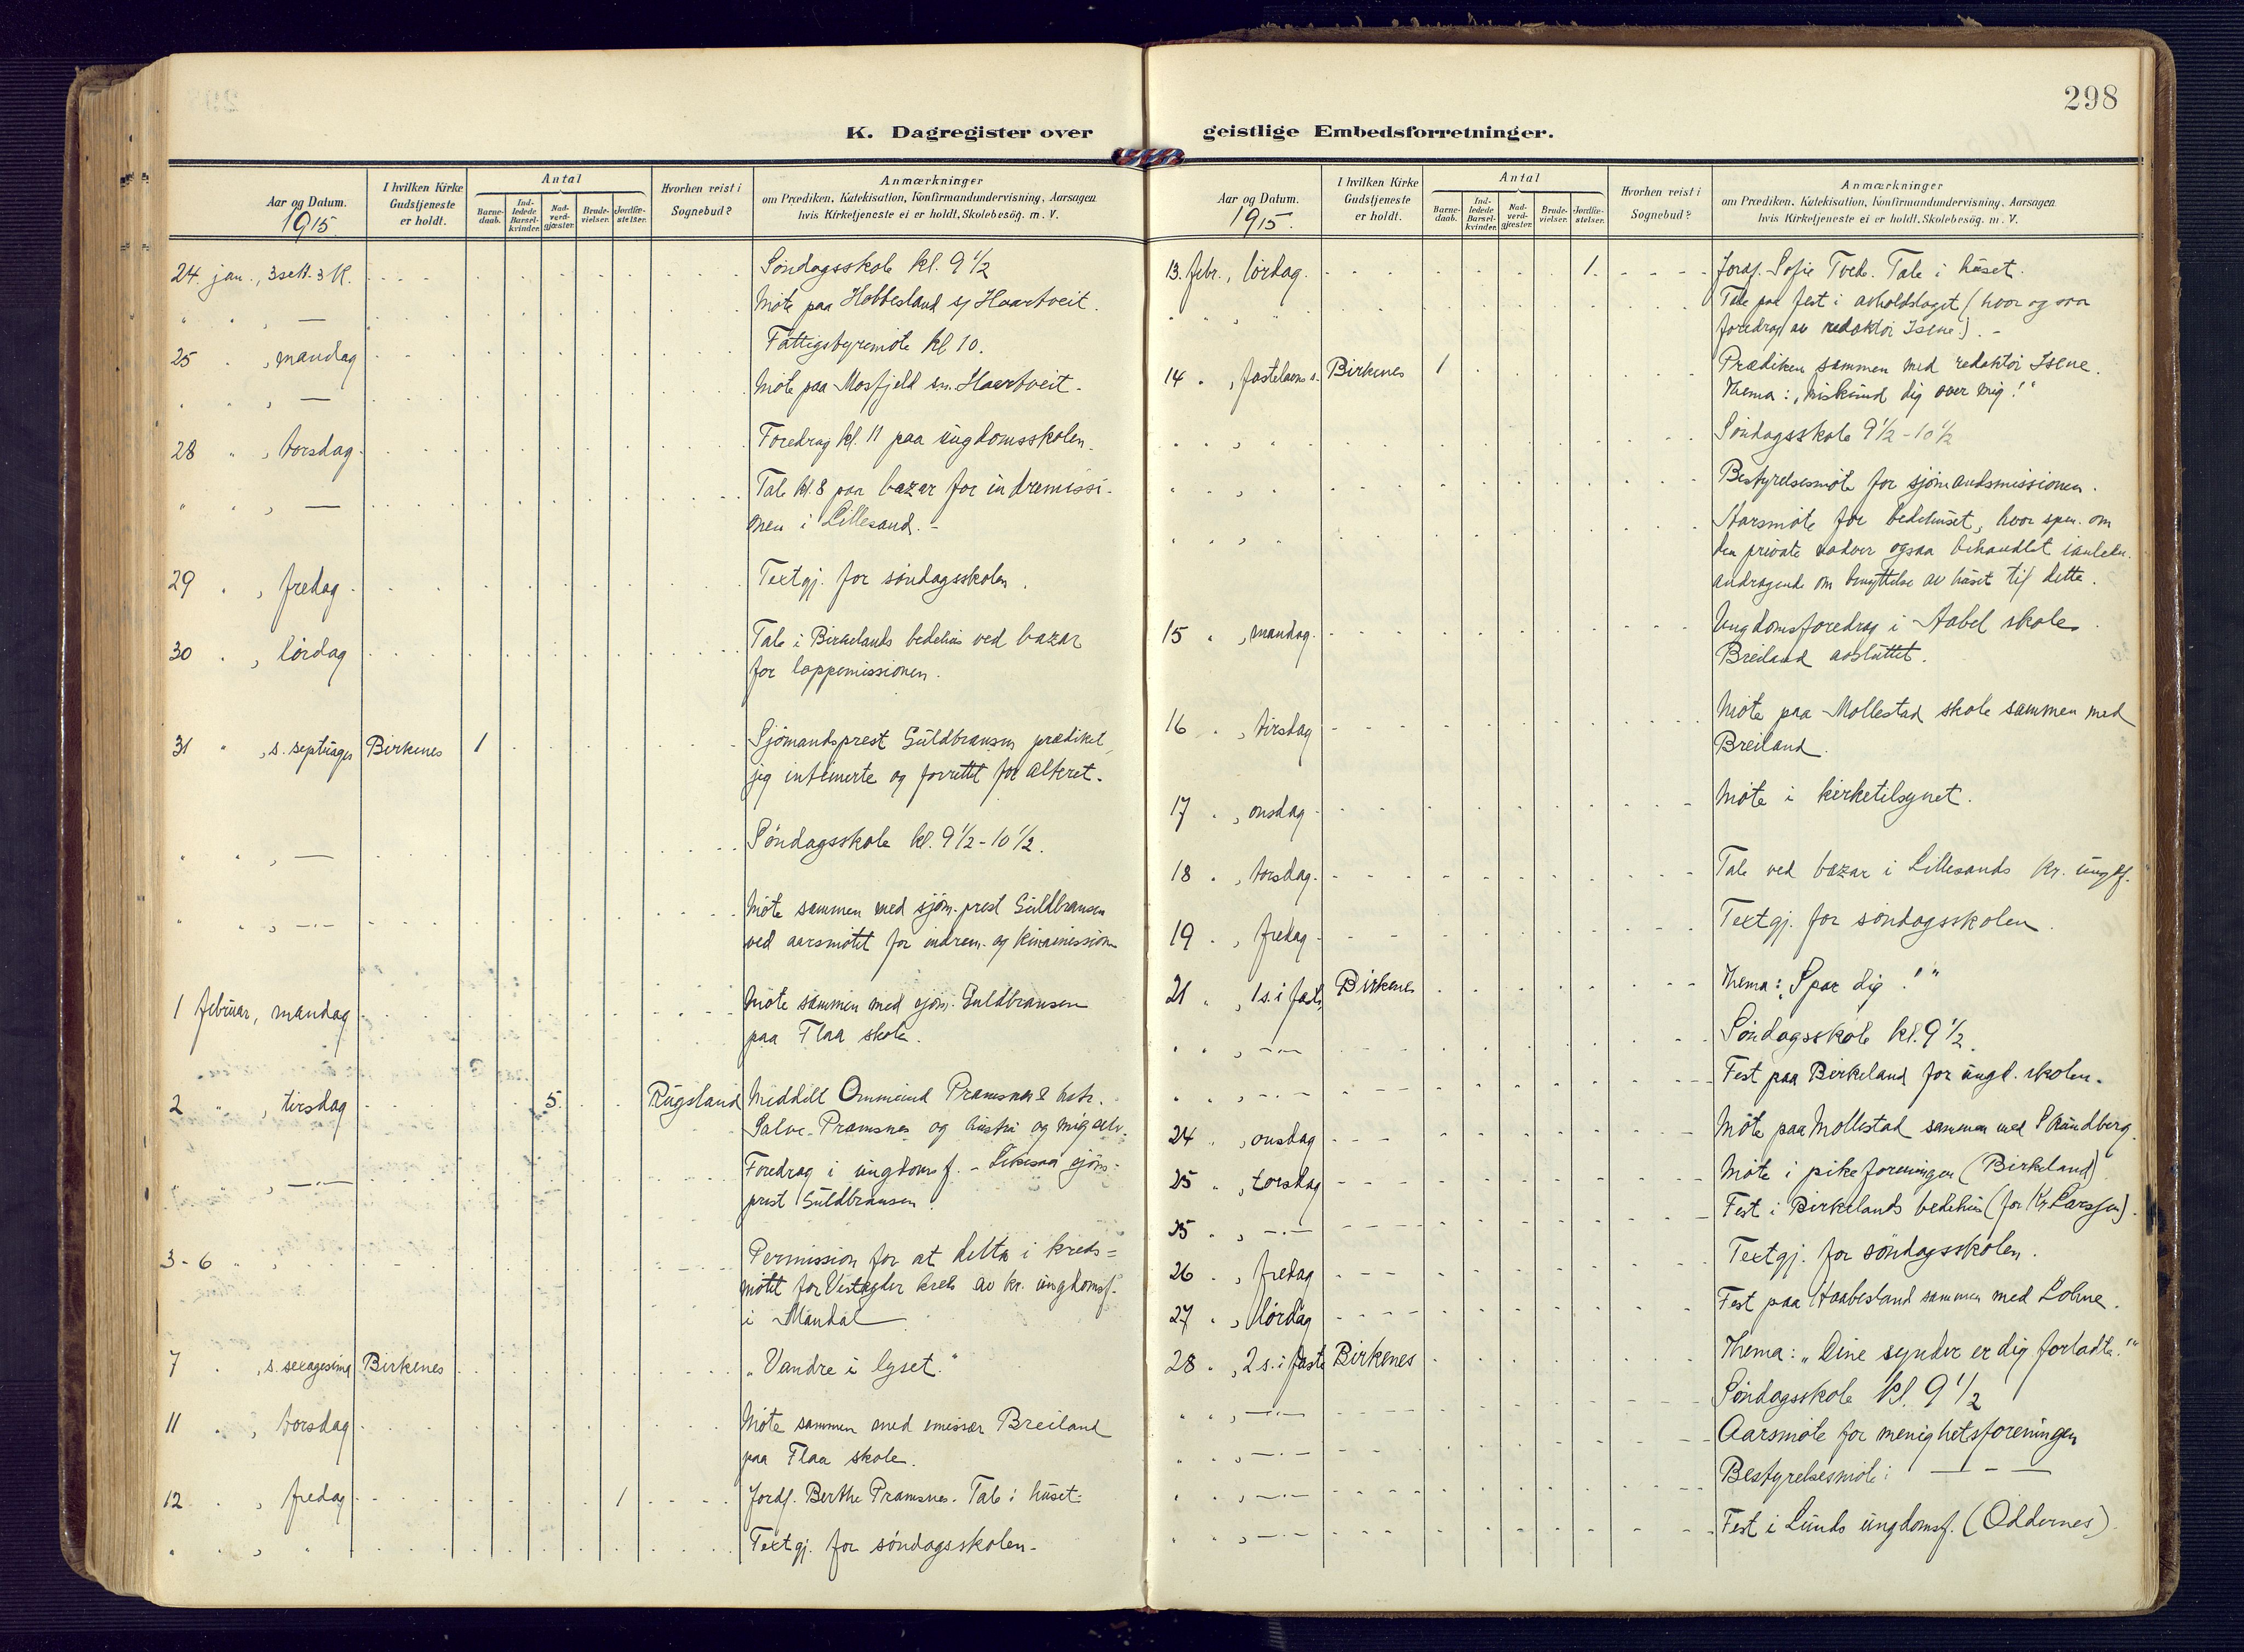 298
K. Dagregister over geistlige Embedsforretninger.
Aar og Datum. 1915.
I hvilken Kirke Gudstjeneste er holdt.
Antal
Barne-daab.
Ind-ledede Barsel-kvinder.
Nad-verd-gjæster.
Brude-vielser.
Jordfæ-stelser.
Hvorhen reist i Sognebud?
Anmærkninger
om Prædiken, Katekisation, Konfirmandundervisning, Aarsagen
hvis Kirketjeneste ei er holdt, Skolebesög. m. V.
24 jan., 3 s e H. 3 K. Söndagsskole kl. 9 1/2
" " , — Möte paa Hobbesland s/ Haartveit.
25 " , mandag Fattigstyremöte kl 10.
" " , — Möte paa Mosfjeld sm. Haartveit.
28 " , torsdag Foredrag kl. 11 paa ungdomsskolen.
" " , — Tale kl. 8 paa bazar for indremissi-
onen i Lillesand. -
29 " , fredag Textgj. for söndagsskolen.
30 " , lördag Tale i Birkelands bedehus ved bazar
for lappemissionen.
31 " , s. septuages Birkenes 1 Sjömandsprest Guldbransen prædiket,
jeg intimerte og forrettet for alteret.
" " , — Söndagsskole kl. 9 1/2 - 10 1/2.
" " , — Möte sammen med sjöm. prest Guldbransen
ved aarsmötet for indrem. og kinamission
1 februar, mandag Möte sammen med sjöm. Guldbransen
paa Flaa skole.
2 " , tirsdag 5 Rugsland Meddelt Ommund Pramsnes
Salve Pramsnes og hustru og mig selv.
" " , — Foredrag i ungdomsf. - Likesaa sjöm.-
prest Guldbransen.
3-6 " , Permission for at delta i kreds=
mötet for Vestagder kreds av kr. ungdomsf.
i Mandal
7 " , s. sexagesima Birkenes "Vandre i lyset."
11 " , torsdag Möte sammen med emissær Breiland
paa Flaa skole.
12 " , fredag 1 Jordf. Berthe Pramsnes. Tale i huset.
" " , " Textgj. for söndagsskolen.
Aar og Datum. 1915.
I hvilken Kirke Gudstjeneste er holdt.
Antal
Barne-daab.
Ind-ledede Barsel-kvinder.
Nad-verd-gjæster.
Brude-vielser.
Jordfæ-stelser.
Hvorhen reist i Sognebud?
Anmærkninger
om Prædiken, Katekisation, Konfirmandundervisning, Aarsagen
hvis Kirketjeneste ei er holdt, Skolebesög. m. V.
13. febr., lördag. 1. Jordf. Sofie Tvede. Tale i huset.
" " , " Tale paa fest i avholdslaget (hvor ogsaa
foredrag av redaktör Isene). -
14 " , fastelavns s. Birkenes 1 Prædiken sammen med redaktör Isene.
Thema: "Miskund dig over mig!"
" " , " Söndagsskole 9 1/2 - 10 1/2
" " , " Bestyrelsesmöte for sjömandsmissionen.
" " , " Aarsmöte for bedehuset, hvor spm. om
den private nadver ogsaa behandlet
andragende om benyttelse av huset til dette.
15 " , mandag. Ungdomsforedrag i Aabel skole.
Breiland avsluttet.
16 " , tirsdag Möte paa Mollestad skole sammen med
Breiland.
17 " , onsdag Möte i kirketilsynet.
18 " , torsdag. Tale ved bazar i Lillesands kr. ungdf.
19 " , fredag Textgj. for söndagsskolen.
21 " , 1 s. i faste Birkenes Thema: "Spar dig!"
" " , — Söndagsskole kl. 9 1/2.
" " , — Fest paa Birkeland for ungd. skolen.
24 " , onsdag Möte paa Mollestad sammen med Strandberg.
25 " , torsdag Möte i pikeforeningen (Birkeland)
25 " , — Fest i Birkelands bedehus (for Kr. Larssen).
26 " , fredag Textgj. for söndagsskolen.
27 " , lördag Fest paa Haabesland sammen med Lohne.
28 " , 2 s. i faste Birkenes Thema: "Dine synder er dig forladte."
" " , — Söndagsskole kl. 9 1/2
" " , — Aarsmöte for menighetsforeningen
" " , — Bestyrelsesmöte: — - —
" " , — Fest i Lunds ungdomsf. (Oddernes).